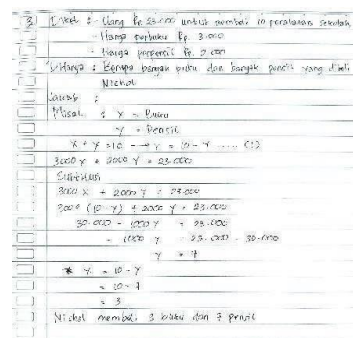 3 Diket : - Uang Rp. 23.000 untuk membeli 10 peralatan sekolah
- Harga perbuku Rp. 3.000
- Harga perpensil Rp. 2.000
Ditanya : Berapa banyak buku dan banyak pensil yang dibeli
Nichol
Jawab :
Misal : x = Buku
y = Pensil
x + y = 10 → x = 10 - y .... (1)
3000 x + 2000 y = 23.000
Subtitusi
3000 x + 2000 y = 23.000
3000 (10 - y) + 2000 y = 23.000
30.000 - 1000 y = 23.000
- 1000 y = 23.000 - 30.000
y = 7
* x = 10 - y
= 10 - 7
= 3
Nichol membeli 3 buku dan 7 pensil